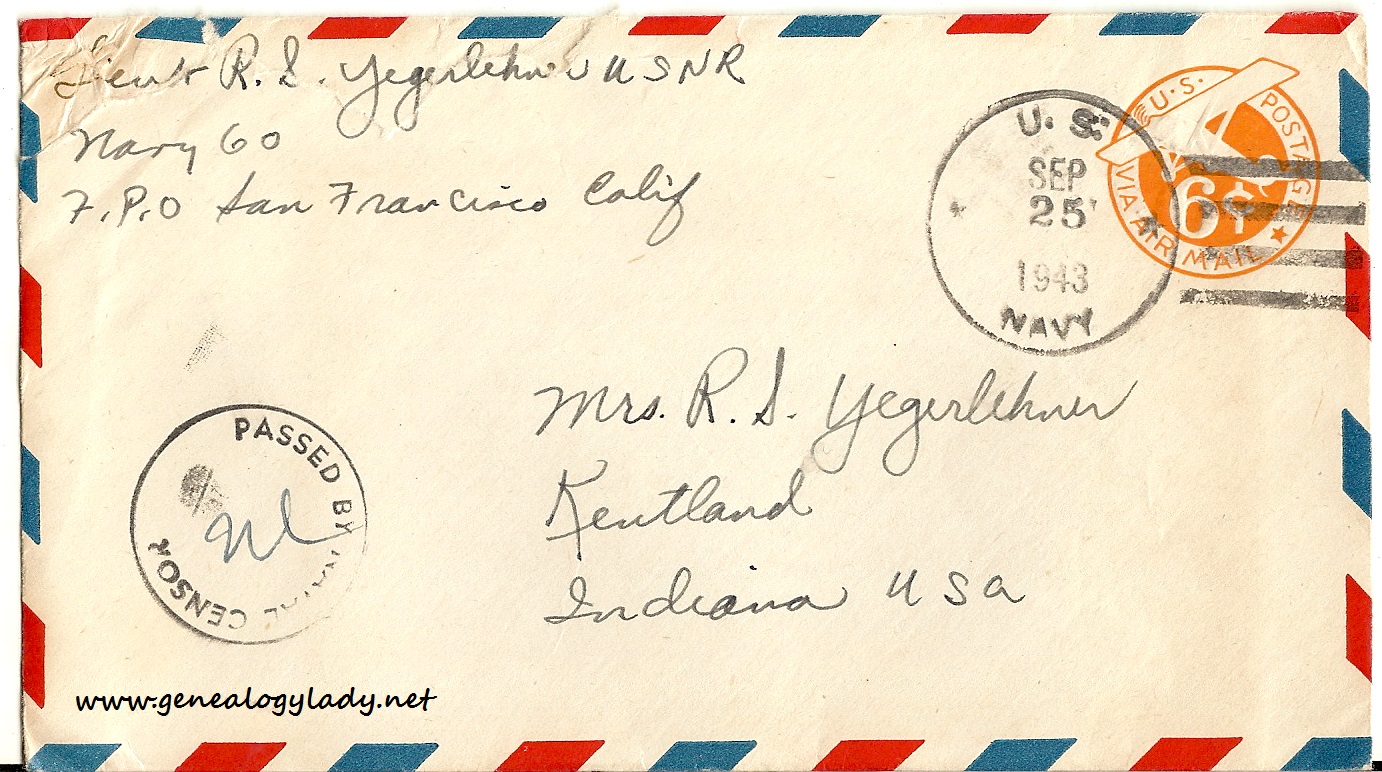 Lieut R. S. Yegerlehner USNR
Navy 60
F.P.O San Francisco Calif
U.S. POSTAGE
6¢
VIA AIR MAIL
U. S.
SEP
25
1943
NAVY
Mrs. R. S. Yegerlehner
Kentland
Indiana USA
PASSED BY NAVAL CENSOR
www.genealogylady.net